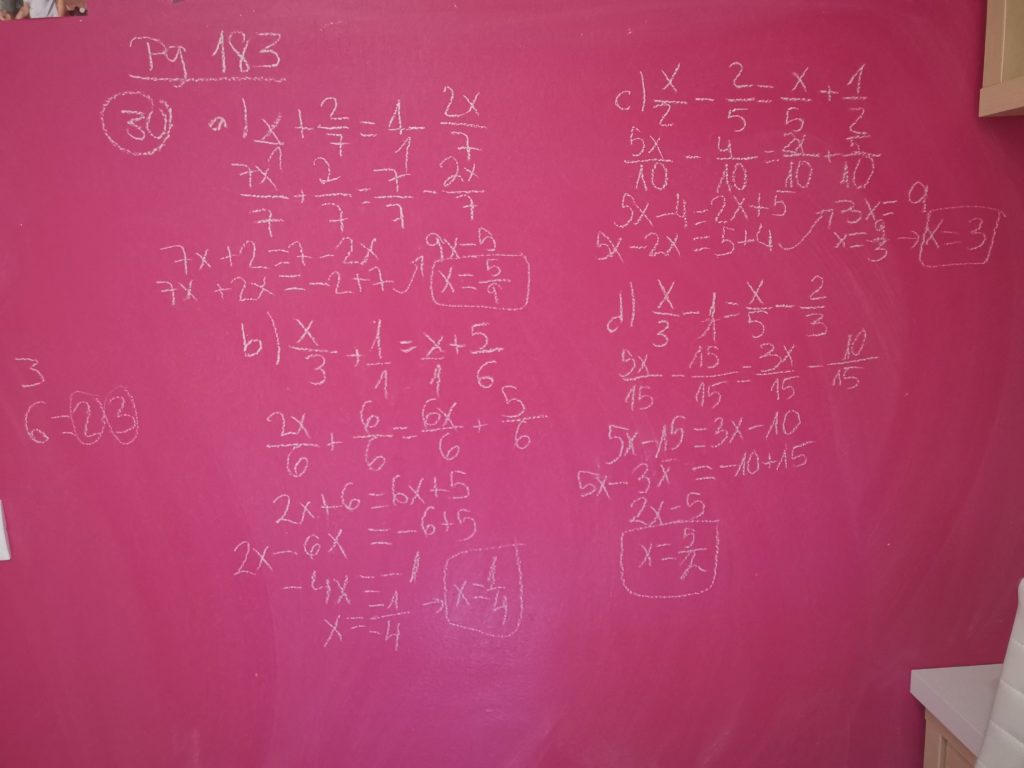 Pg 183
30
a) x/1 + 2/7 = 1/1 - 2x/7
7x/7 + 2/7 = 7/7 - 2x/7
7x+2=7-2x
7x+2x=-2+7
9x-5
x=5/9
b) x/3 + 1/1 = x/1 + 5/6
2x/6 + 6/6 = 6x/6 + 5/6
2x+6=6x+5
2x-6x=-6+5
-4x=-1
x=-1/-4 → x=1/4
3
6=2·3
c) x/2 - 2/5 = x/5 + 1/2
5x/10 - 4/10 = 2x/10 + 5/10
5x-4=2x+5
5x-2x=5+4
3x=9
x=9/3 → x=3
d) x/3 - 1/1 = x/5 - 2/3
5x/15 - 15/15 = 3x/15 - 10/15
5x-15=3x-10
5x-3x=-10+15
2x-5
x=5/2